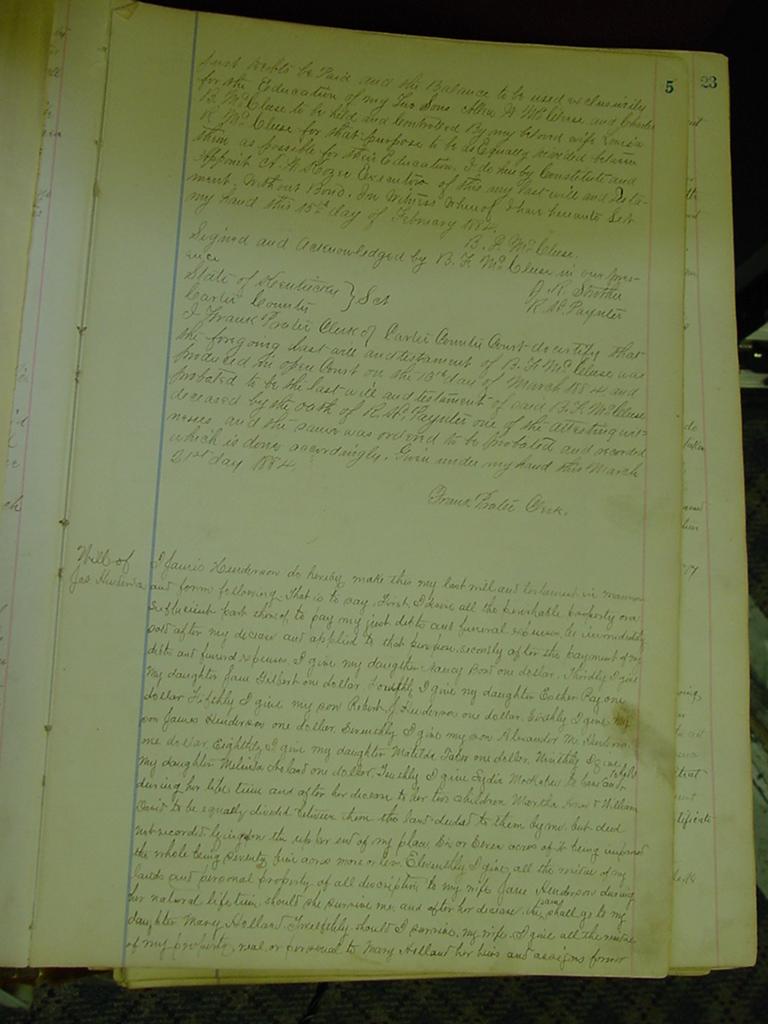 5 23
just debts be Paid and the Balance to be used exclusively
for the Education of my Two Sons Allen W McCleese and Charles
B. McCleese to be held and controlled By my beloved wife
R McCleese for that purpose to be as Equally divided between
them as possible for their Education. I do hereby Constitute and
Appoint Executor of this my last will and Testa-
ment, Without Bond. In Witness Whereof I have hereunto Set
my hand this 15th day of February 1884.
B. F. McCleese.
Signed and Acknowledged by B. F. McCleese in our pres-
ence
J. R. Strother
R. W. Paynter
State of Kentucky } Sct
Carter County
I Frank Prater Clerk of Carter County Court do certify that
the foregoing last will and testament of B. F. McCleese was
produced in open Court on the 10th day of March 1884 and
probated to be the last will and testament of said B. F. McCleese
deceased by the oath of R. W. Paynter one of the attesting wit-
nesses, and the same was ordered to be probated and recorded
which is done accordingly. Given under my hand this March
21st day 1884.
Frank Prater Clerk.
Will of
Jas Henderson
I James Henderson do hereby make this my last will and testament in manner
and form following. That is to say, First, I desire all the perishable property or a
sufficient part thereof to pay my just debts and funeral expenses, be immediately
sold after my decease and applied to that purpose. secondly after the payment of my
debts and funeral expenses, I give my daughter Nancy one dollar. Thirdly I give
my daughter Jane Gilbert one dollar Fourthly I give my daughter Esther Ray one
dollar Fifthly I give my son Robert J Henderson one dollar. Sixthly I give my
son James Henderson one dollar. Seventhly I give my son Alexander M. Henderson
one dollar. Eighthly, I give my daughter Matilda Tabor one dollar. Ninthly I give
my daughter Melinda one dollar. Tenthly I give Lydia to have and to hold
during her life time and after her decease to her two children Martha Ann & William
David to be equally divided between them the land deeded to them by me. but deed
not recorded lying on the upper end of my place. Six or Seven acres of it being improved
the whole being seventy five acres more or less. Eleventhly I give, all the residue of my
lands and personal property of all description to my wife Jane Henderson during
her natural life time, should she survive me and after her decease, the same shall go to my
daughter Mary Holland Twelfthly should I survive, my wife, I give all the residue
of my property, real or personal to Mary Holland her heirs and assigns forever